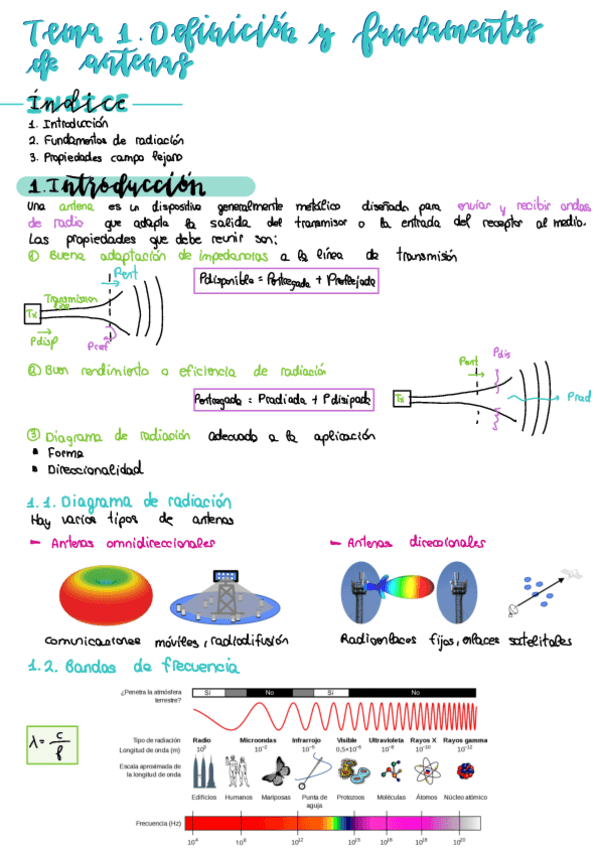 Tema 1. Definición y fundamentos
de antenas
Índice
1. Introducción
2. Fundamentos de radiación
3. Propiedades campo lejano
1. Introducción
Una antena es un dispositivo generalmente metálico diseñado para enviar y recibir ondas
de radio que adapta la salida del transmisor o la entrada del receptor al medio.
Las propiedades que debe reunir son:
① Buena adaptación de impedancias a la línea de transmisión
Pent
Transmission
line
Tx
Pdisp
Pref
Pdisponible = Pentregada + Preflejada
② Buen rendimiento o eficiencia de radiación
Pentregada = Pradiada + Pdisipada
Pent
Pdis
Tx
Prad
③ Diagrama de radiación adecuado a la aplicación
• Forma
• Direccionalidad
1.1. Diagrama de radiación
Hay varios tipos de antenas
- Antenas omnidireccionales
- Antenas direccionales
Comunicaciones móviles, radiodifusión
Radioenlaces fijos, enlaces satelitales
1.2. Bandas de frecuencia
λ = c/f
¿Penetra la atmósfera
terrestre?
Sí No Sí No
Tipo de radiación Radio Microondas Infrarrojo Visible Ultravioleta Rayos X Rayos gamma
Longitud de onda (m) 10³ 10⁻² 10⁻⁵ 0,5×10⁻⁶ 10⁻⁸ 10⁻¹⁰ 10⁻¹²
Escala aproximada de
la longitud de onda
Edificios Humanos Mariposas Punta de aguja Protozoos Moléculas Átomos Núcleo atómico
Frecuencia (Hz)
10⁴ 10⁸ 10¹² 10¹⁵ 10¹⁶ 10¹⁸ 10²⁰